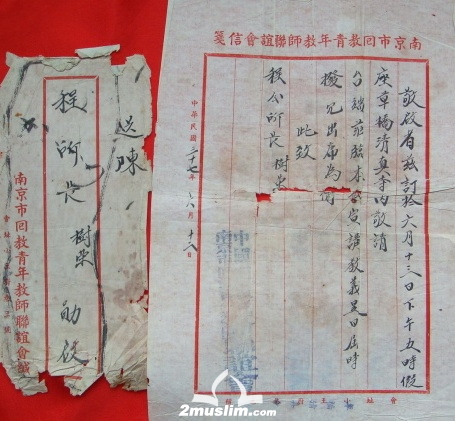 南京市回教青年教師聯誼會信箋
敬啟者茲訂於六月十三日下午五時假
座草橋清真寺內敬請
台端蒞臨本會宣講教義是日屆時
撥冗出席為荷
此致
程公所長 樹榮
中華民國三十七年六月十三日
送陳
程所長 樹榮 勛啟
南京市回教青年教師聯誼會緘
2muslim.com